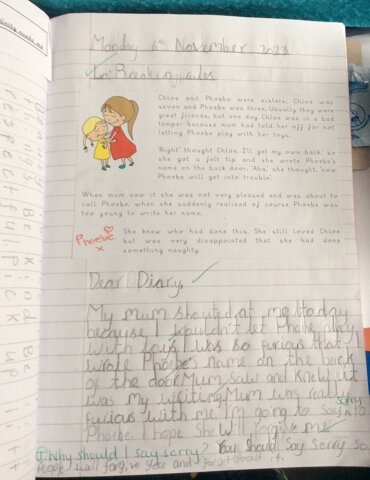 Monday 6th November 2023
Lo: Breaking rules
Chloe and Phoebe were sisters, Chloe was
seven and Phoebe was three. Usually they were
great friends, but one day Chloe was in a bad
temper because mum had told her off for not
letting Phoebe play with her toys.
'Right!' thought Chloe, I'll get my own back,' so
she got a felt tip and she wrote Phoebe's
name on the back door. 'Aha,' she thought, 'now
Phoebe will get into trouble'.
When mum saw it she was not very pleased and was about to
call Phoebe, when she suddenly realised of course Phoebe was
too young to write her name.
Phoebe
x
She knew who had done this. She still loved Chloe
but was very disappointed that she had done
something naughty.
Dear Diary,
My mum shouted at me today
because I wouldn't let Phoebe play
with toys. I was so furious that I
wrote Phoebe's name on the back
of the door. Mum saw and knew it
was my writing. Mum was really
furious with me. I'm going to say sorry to
Phoebe. I hope she will forgive me.
Why should I say sorry? You should say sorry so
people will forgive you and forget about it.